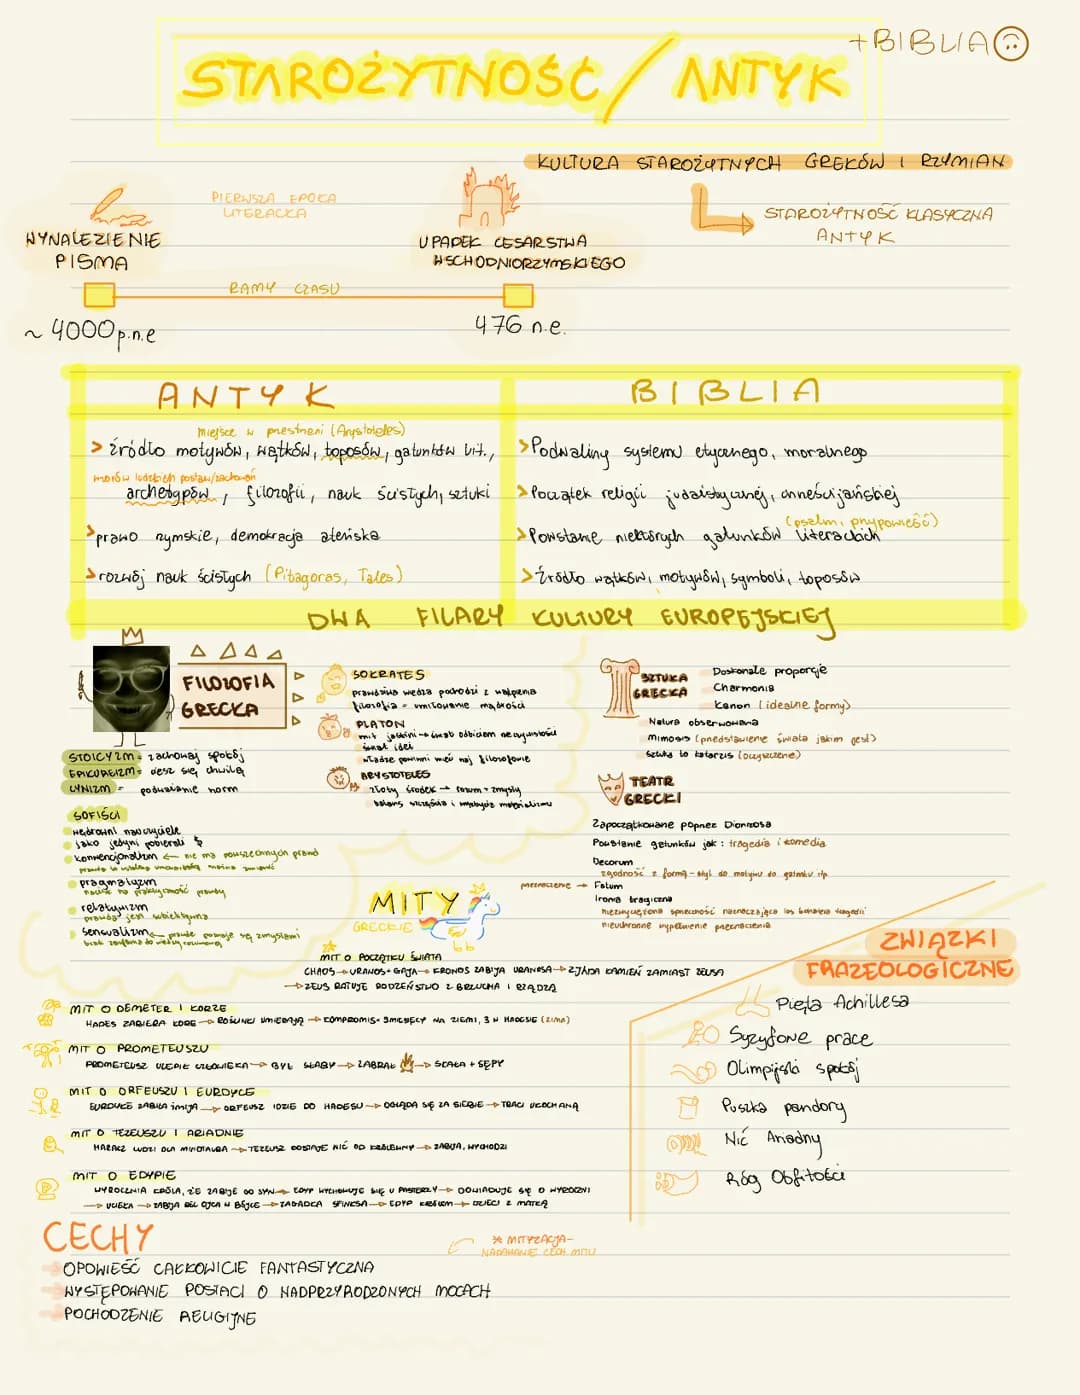 +BIBLIA
STAROŻYTNOŚĆ/ANTYK
KULTURA STAROŻYTNYCH GREKÓW I RZYMIAN
STAROŻYTNOŚĆ KLASYCZNA
ANTYK
PIERWSZA EPOKA
LITERACKA
WYNALEZIENIE
PISMA
UPADEK CESARSTWA
WSCHODNIORZYMSKIEGO
RAMY CZASU
~ 4000 p.n.e
476 n.e.
ANTYK
miejsce w przestrzeni (Arystoteles)
> źródło motywów, wątków, toposów, gatunków lit.,
wzorów ludzkich postaw/zachowań
archetypów, filozofii, nauk ścisłych, sztuki
> prawo rzymskie, demokracja ateńska
> rozwój nauk ścisłych (Pitagoras, Tales)
BIBLIA
> Podwaliny systemu etycznego, moralnego
> Początek religii judaistycznej, chrześcijańskiej
(psalm, przypowieść)
> Powstanie niektórych gatunków literackich
> Źródło wątków, motywów, symboli, toposów
DWA FILARY KULTURY EUROPEJSKIEJ
FILOZOFIA
GRECKA
STOICYZM = zachowaj spokój
EPIKUREIZM = ciesz się chwilą
CYNIZM = podważanie norm
SOFIŚCI
wędrowni nauczyciele
jako jedyni pobierali $
konwencjonalizm ← nie ma powszechnych prawd
pragmatyzm
nacisk na praktyczność prawdy
relatywizm
prawda jest subiektywna
sensualizm ← prawdę poznaje się zmysłami
SOKRATES
prawdziwa wiedza pochodzi z wątpienia
filozofia = umiłowanie mądrości
PLATON
mit jaskini → świat odbiciem rzeczywistości
świat idei
władzę powinni mieć naj filozofowie
ARYSTOTELES
złoty środek → rozum + zmysły
SZTUKA
GRECKA
Doskonałe proporcje
Charmonia
Kanon (idealne formy)
Natura obserwowana
Mimesis (przedstawienie świata jakim jest)
Sztuka to katarzis (oczyszczenie)
TEATR
GRECKI
Zapoczątkowane poprzez Dionizosa
Powstanie gatunków jak: tragedia i komedia
Decorum
zgodność z formą - styl do motywu do gatunku itp
przeznaczenie → Fatum
Ironia tragiczna
niezwyciężona sprzeczność naznaczająca los bohatera tragedii
nieuchronne wypełnienie przeznaczenia
MITY
GRECKIE
MIT O POCZĄTKU ŚWIATA
CHAOS → URANOS + GAJA → KRONOS ZABIJA URANOSA → ZJADA KAMIEŃ ZAMIAST ZEUSA
→ ZEUS RATUJE RODZEŃSTWO Z BRZUCHA I RZĄDZĄ
MIT O DEMETER I KORZE
HADES ZABIERA KORE → ROŚLINKI UMIERAJĄ → KOMPROMIS = 9 MIESIĘCY NA ZIEMI, 3 W HADESIE (ZIMA)
MIT O PROMETEUSZU
PROMETEUSZ ULEPIŁ CZŁOWIEKA → BYŁ SŁABY → ZABRAŁ → SKAŁA + SĘPY
MIT O ORFEUSZU I EURDYCE
EURDYKE ZABIŁA ŻMIJA → ORFEUSZ IDZIE DO HADESU → OGLĄDA SIĘ ZA SIEBIE → TRACI UKOCHANĄ
MIT O TEZEUSZU I ARIADNIE
HARACZ LUDZI DLA MINOTAURA → TEZEUSZ DOSTAJE NIĆ OD KRÓLEWNY → ZABIJA, WYCHODZI
MIT O EDYPIE
WYROCZNIA KRÓLA, ŻE ZABIJE GO SYN → EDYP WYCHOWUJE SIĘ U PASTERZY → DOWIADUJE SIĘ O WYROCZNI
→ UCIEKA → ZABIJA BIOL OJCA W BÓJCE → ZAGADKA SFINKSA → EDYP KRÓLEM → DZIECI Z MATKĄ
ZWIĄZKI
FRAZEOLOGICZNE
Pięta Achillesa
Syzyfowe prace
Olimpijski spokój
Puszka pandory
Nić Ariadny
Róg Obfitości
CECHY
OPOWIEŚĆ CAŁKOWICIE FANTASTYCZNA
WYSTĘPOWANIE POSTACI O NADPRZYRODZONYCH MOCACH
POCHODZENIE RELIGIJNE
* MITYZACJA -
NADAWANIE CECH MITU